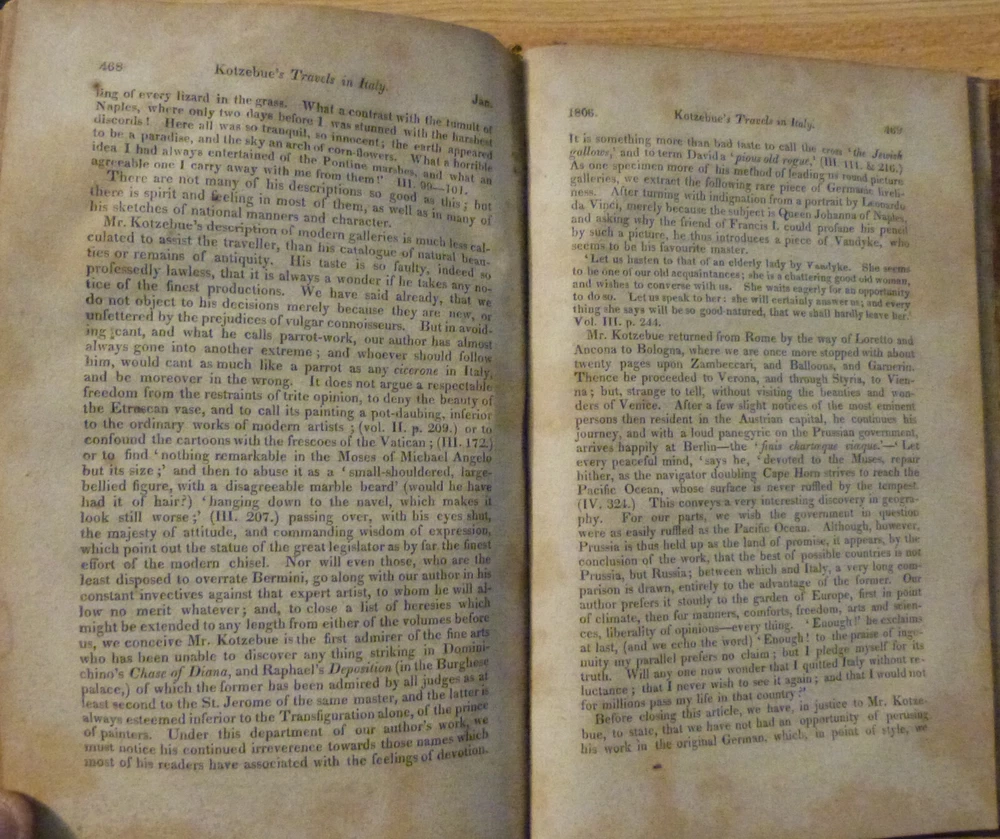 468
Kotzebue's Travels in Italy.
Jan.
ling of every lizard in the grass. What a contrast with the tumult of
Naples, where only two days before I was stunned with the harshest
discords! Here all was so tranquil, so innocent; the earth appeared
to be a paradise, and the sky an arch of corn-flowers. What a horrible
idea I had always entertained of the Pontine marshes, and what an
agreeable one I carry away with me from them!' III. 99—101.
There are not many of his descriptions so good as this; but
there is spirit and feeling in most of them, as well as in many of
his sketches of national manners and character.
Mr. Kotzebue's description of modern galleries is much less cal-
culated to assist the traveller, than his catalogue of natural beau-
ties or remains of antiquity. His taste is so faulty, indeed so
professedly lawless, that it is always a wonder if he takes any no-
tice of the finest productions. We have said already, that we
do not object to his decisions merely because they are new, or
unfettered by the prejudices of vulgar connoisseurs. But in avoid-
ing cant, and what he calls parrot-work, our author has almost
always gone into another extreme; and whoever should follow
him, would cant as much like a parrot as any cicerone in Italy,
and be moreover in the wrong. It does not argue a respectable
freedom from the restraints of trite opinion, to deny the beauty of
the Etruscan vase, and to call its painting a pot-daubing, inferior
to the ordinary works of modern artists; (vol. II. p. 209.) or to
confound the cartoons with the frescoes of the Vatican; (III. 172.)
or to find 'nothing remarkable in the Moses of Michael Angelo
but its size;' and then to abuse it as a 'small-shouldered, large-
bellied figure, with a disagreeable marble beard' (would he have
had it of hair?) 'hanging down to the navel, which makes it
look still worse;' (III. 207.) passing over, with his eyes shut,
the majesty of attitude, and commanding wisdom of expression,
which point out the statue of the great legislator as by far the finest
effort of the modern chisel. Nor will even those, who are the
least disposed to overrate Bermini, go along with our author in his
constant invectives against that expert artist, to whom he will al-
low no merit whatever; and, to close a list of heresies which
might be extended to any length from either of the volumes before
us, we conceive Mr. Kotzebue is the first admirer of the fine arts
who has been unable to discover any thing striking in Domini-
chino's Chase of Diana, and Raphael's Deposition (in the Burghese
palace,) of which the former has been admired by all judges as at
least second to the St. Jerome of the same master, and the latter is
always esteemed inferior to the Transfiguration alone, of the prince
of painters. Under this department of our author's work, we
must notice his continued irreverence towards those names which
most of his readers have associated with the feelings of devotion.
1806.
Kotzebue's Travels in Italy.
469
It is something more than bad taste to call the cross 'the Jewish
gallows,' and to term Davida 'pious old rogue.' (III. 111. & 216.)
As one specimen more of his method of leading us round picture
galleries, we extract the following rare piece of Germanic liveli-
ness. After turning with indignation from a portrait by Leonardo
da Vinci, merely because the subject is Queen Johanna of Naples,
and asking why the friend of Francis I. could profane his pencil
by such a picture, he thus introduces a piece of Vandyke, who
seems to be his favourite master.
'Let us hasten to that of an elderly lady by Vandyke. She seems
to be one of our old acquaintances; she is a chattering good old woman,
and wishes to converse with us. She waits eagerly for an opportunity
to do so. Let us speak to her: she will certainly answer us; and every
thing she says will be so good-natured, that we shall hardly leave her.'
Vol. III. p. 244.
Mr. Kotzebue returned from Rome by the way of Loretto and
Ancona to Bologna, where we are once more stopped with about
twenty pages upon Zambeccari, and Balloons, and Garnerin.
Thence he proceeded to Verona, and through Styria, to Vien-
na; but, strange to tell, without visiting the beauties and won-
ders of Venice. After a few slight notices of the most eminent
persons then resident in the Austrian capital, he continues his
journey, and with a loud panegyric on the Prussian government,
arrives happily at Berlin—the 'finis chartæque viæque.'—'Let
every peaceful mind, 'says he, 'devoted to the Muses, repair
hither, as the navigator doubling Cape Horn strives to reach the
Pacific Ocean, whose surface is never ruffled by the tempest.
(IV. 324.) This conveys a very interesting discovery in geogra-
phy. For our parts, we wish the government in question
were as easily ruffled as the Pacific Ocean. Although, however,
Prussia is thus held up as the land of promise, it appears, by the
conclusion of the work, that the best of possible countries is not
Prussia, but Russia; between which and Italy, a very long com-
parison is drawn, entirely to the advantage of the former. Our
author prefers it stoutly to the garden of Europe, first in point
of climate, then for manners, comforts, freedom, arts and scien-
ces, liberality of opinions—every thing. 'Enough!' he exclaims
at last, (and we echo the word) 'Enough! to the praise of inge-
nuity my parallel prefers no claim; but I pledge myself for its
truth. Will any one now wonder that I quitted Italy without re-
luctance; that I never wish to see it again; and that I would not
for millions pass my life in that country?'
Before closing this article, we have, in justice to Mr. Kotze-
bue, to state, that we have not had an opportunity of perusing
his work in the original German, which, in point of style, we